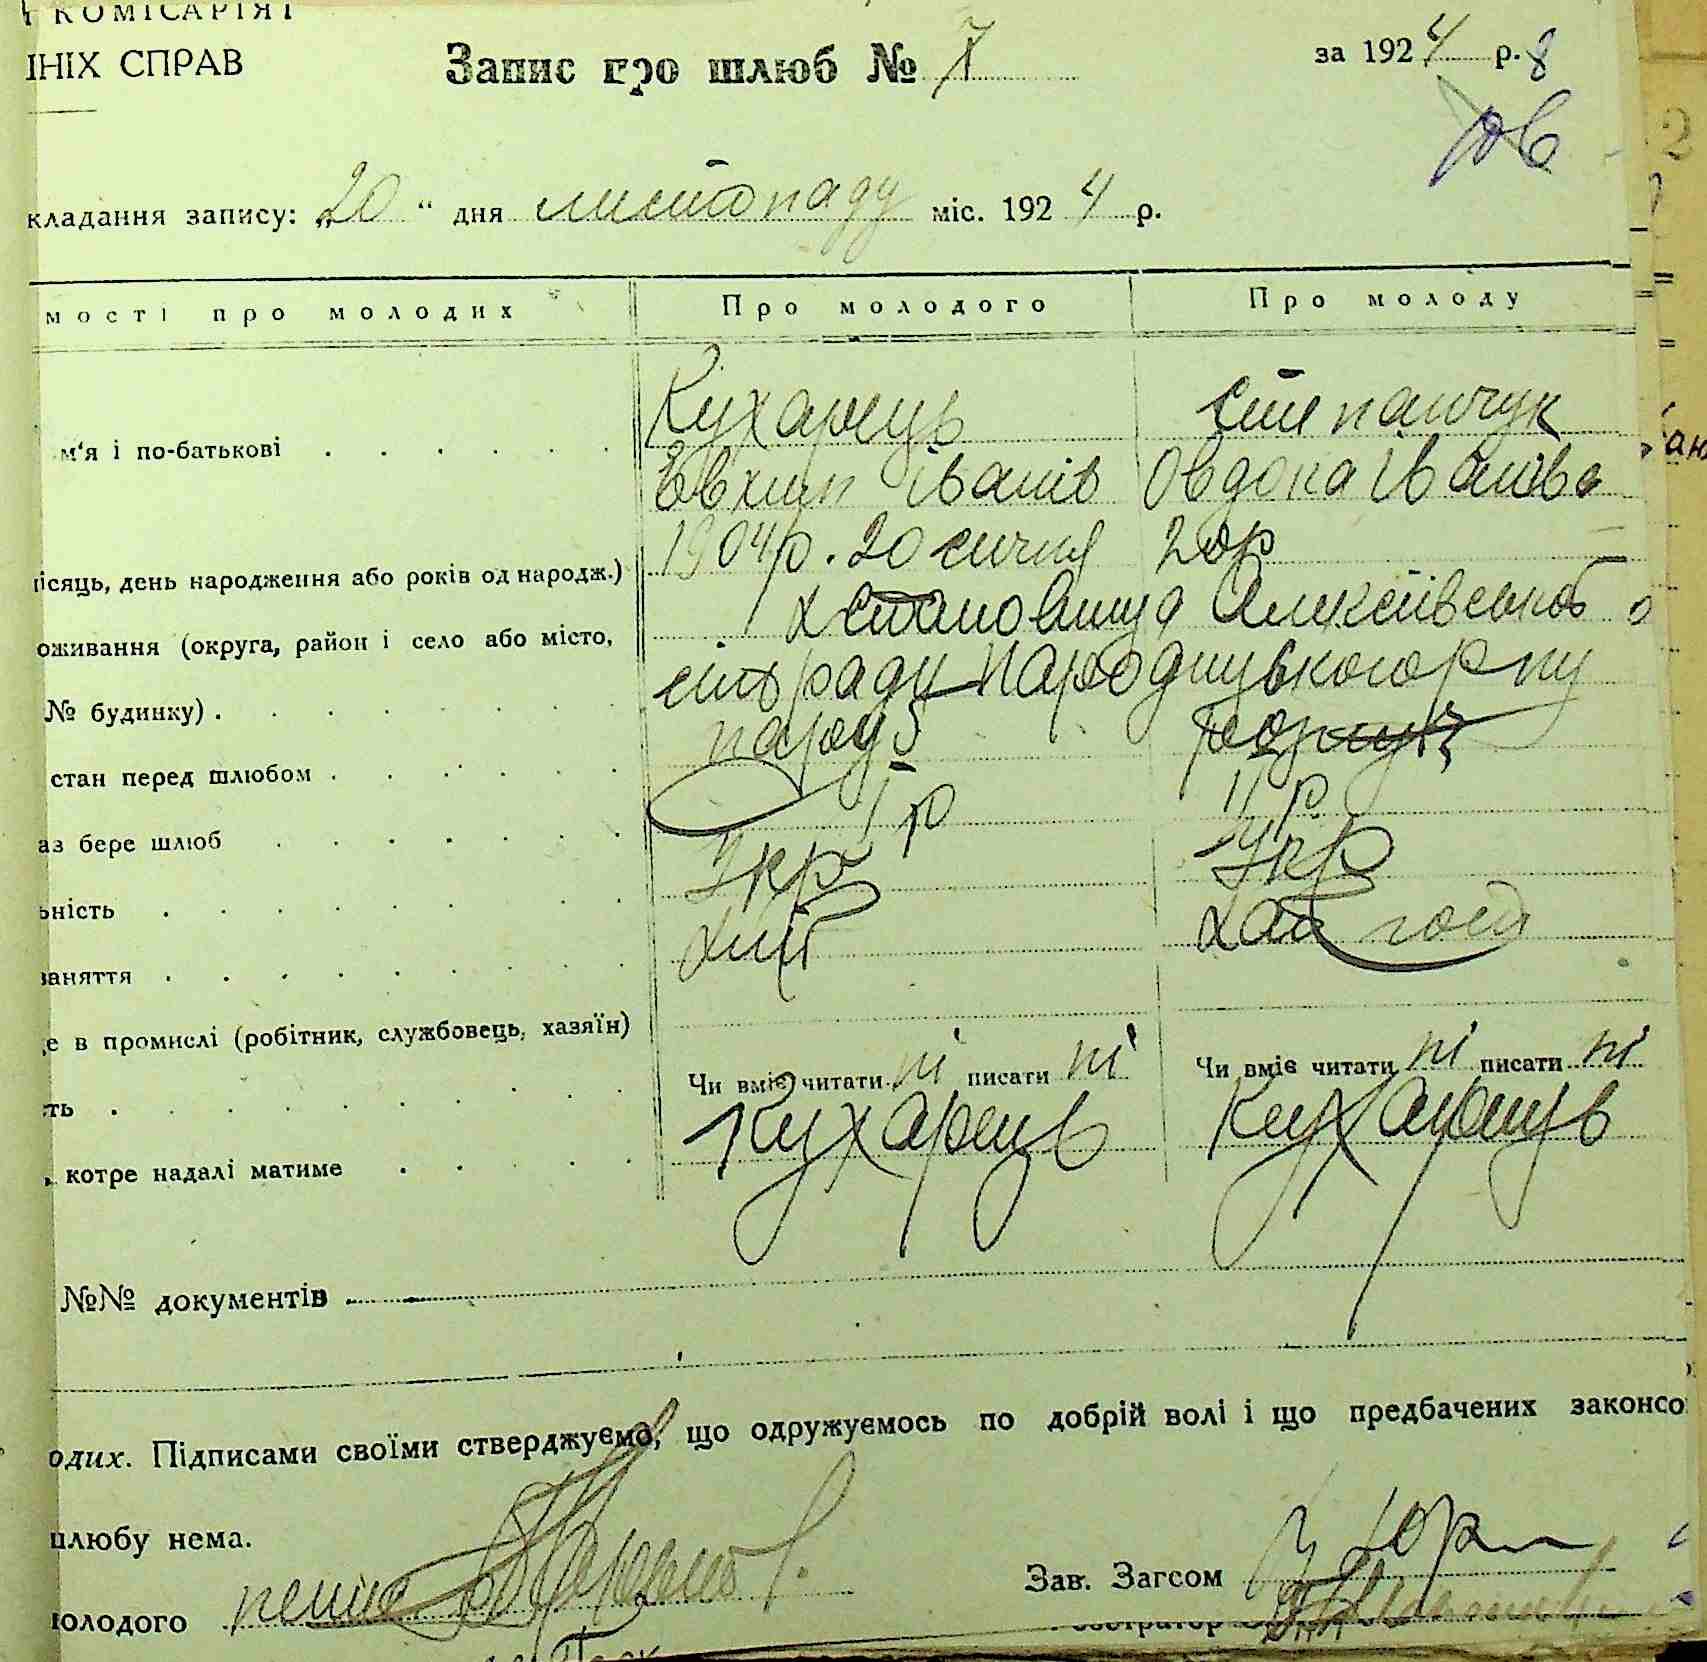 КОМІСАРІЯТ
ІНІХ СПРАВ
Запис про шлюб № 7 за 1924 р. 8
кладання запису: „20“ дня листопаду міс. 1924 р.
мості про молодих Про молодого Про молоду
м'я і по-батькові Кухарець Степанчук
Евхим Іванів Овдока Іванівна
ісяць, день народження або років од народж.) 1904р. 20 сичня 20р
оживання (округа, район і село або місто, х Становища Алексіївської
№ будинку) сіль ради Народицького р ну
стан перед шлюбом пароб
аз бере шлюб І р ІІ р.
ьність Укр Укр
заняття хліб хат госп
е в промислі (робітник, службовець, хазяїн)
ть Чи вміє читати ні писати ні Чи вміє читати ні писати ні
котре надалі матиме Кухарець Кухарець
№№ документів
одих. Підписами своїми стверджуємо, що одружуємось по добрій волі і що предбачених законсо
шлюбу нема.
молодого Зав. Загсом